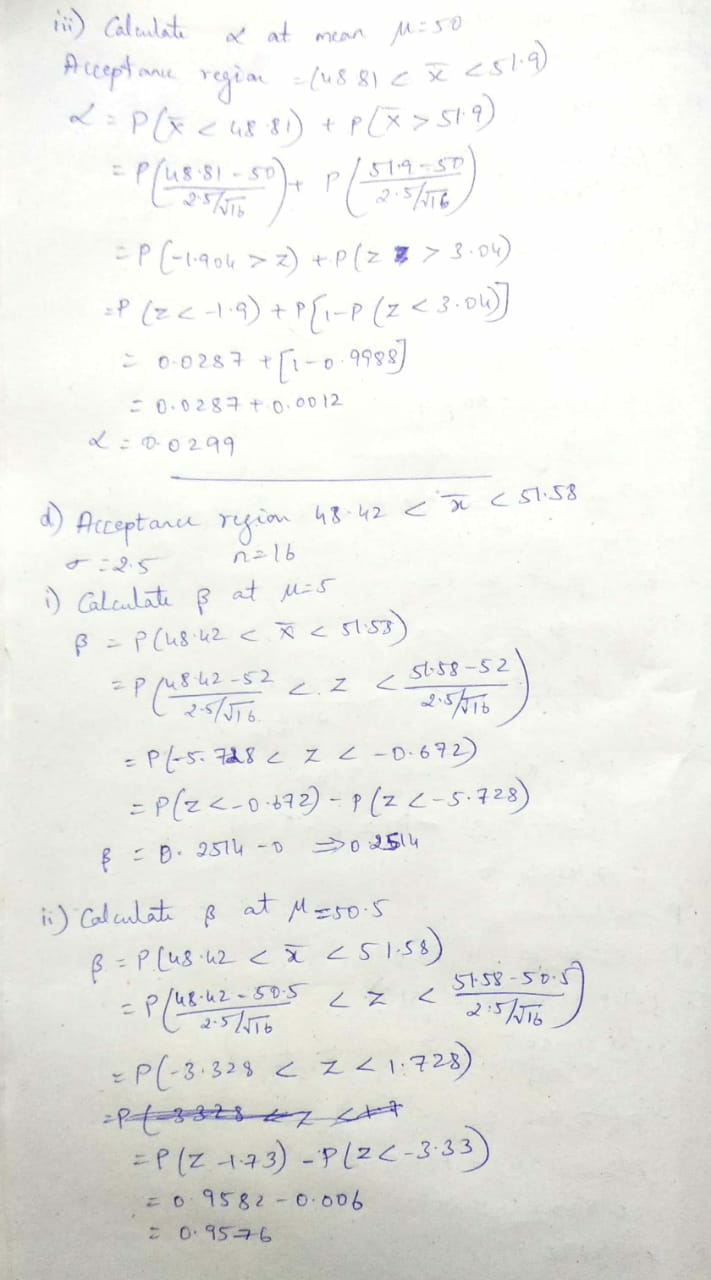 iii) Calculate α at mean μ=50
Acceptance region = (48.81 < x̄ < 51.9)
α = P(x̄ < 48.81) + P(x̄ > 51.9)
= P((48.81-50)/(2.5/√16)) + P((51.9-50)/(2.5/√16))
= P(-1.904 > z) + P(z > 3.04)
= P(z < -1.9) + P[1-P(z < 3.04)]
= 0.0287 + [1-0.9988]
= 0.0287 + 0.0012
α = 0.0299
d) Acceptance region 48.42 < x̄ < 51.58
σ = 2.5 n=16
i) Calculate β at μ=5
β = P(48.42 < x̄ < 51.58)
= P((48.42-52)/(2.5/√16) < z < (51.58-52)/(2.5/√16))
= P(-5.728 < z < -0.672)
= P(z < -0.672) - P(z < -5.728)
β = 0.2514 - 0 ⇒ 0.2514
ii) Calculate β at μ=50.5
β = P(48.42 < x̄ < 51.58)
= P((48.42-50.5)/(2.5/√16) < z < (51.58-50.5)/(2.5/√16))
= P(-3.328 < z < 1.728)
= P(z -1.73) - P(z < -3.33)
= 0.9582 - 0.006
= 0.9576